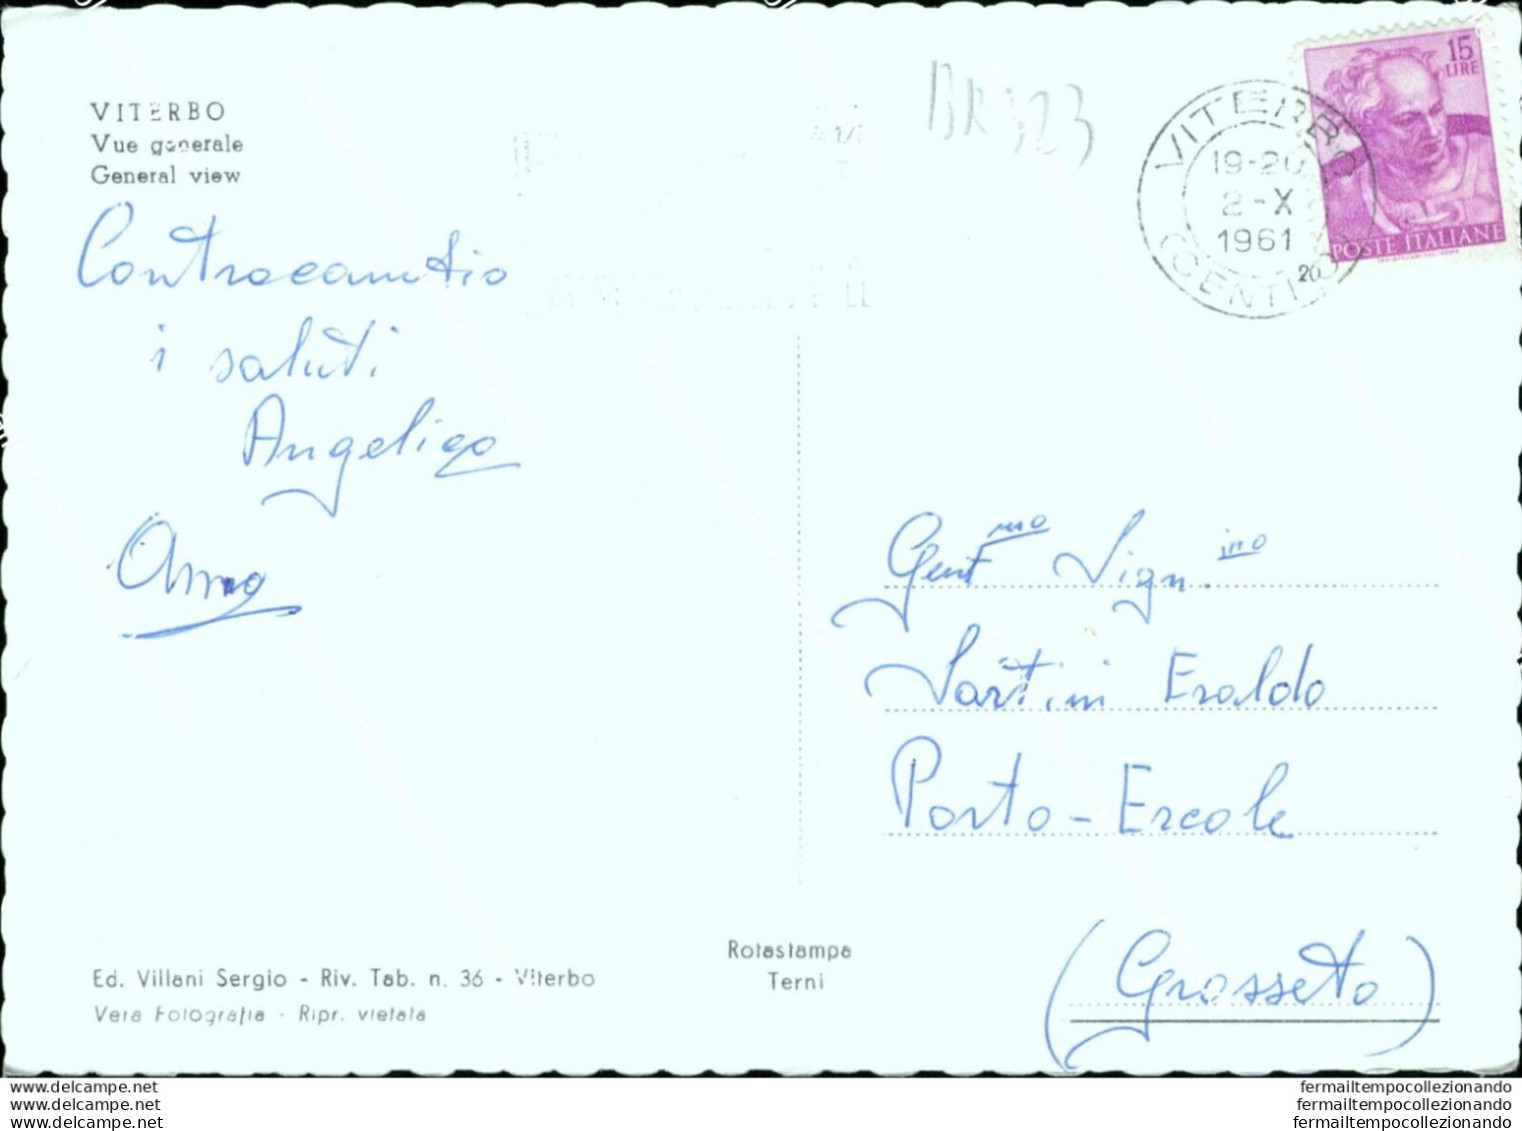 VITERBO
Vue generale
General view
Contraccambio
i saluti
Angelico
15
LIRE
POSTE ITALIANE
VITERBO
19-20
2-X
1961
CENTRO
20
Gent.mo Sign.ino
Sartini Eraldo
Porto-Ercole
(Grosseto)
Rotastampa
Terni
Ed. Villani Sergio - Riv. Tab. n. 36 - Viterbo
Vera Fotografia - Ripr. vietata
www.delcampe.net
www.delcampe.net
www.delcampe.net
fermailtempocollezionando
fermailtempocollezionando
fermailtempocollezionando